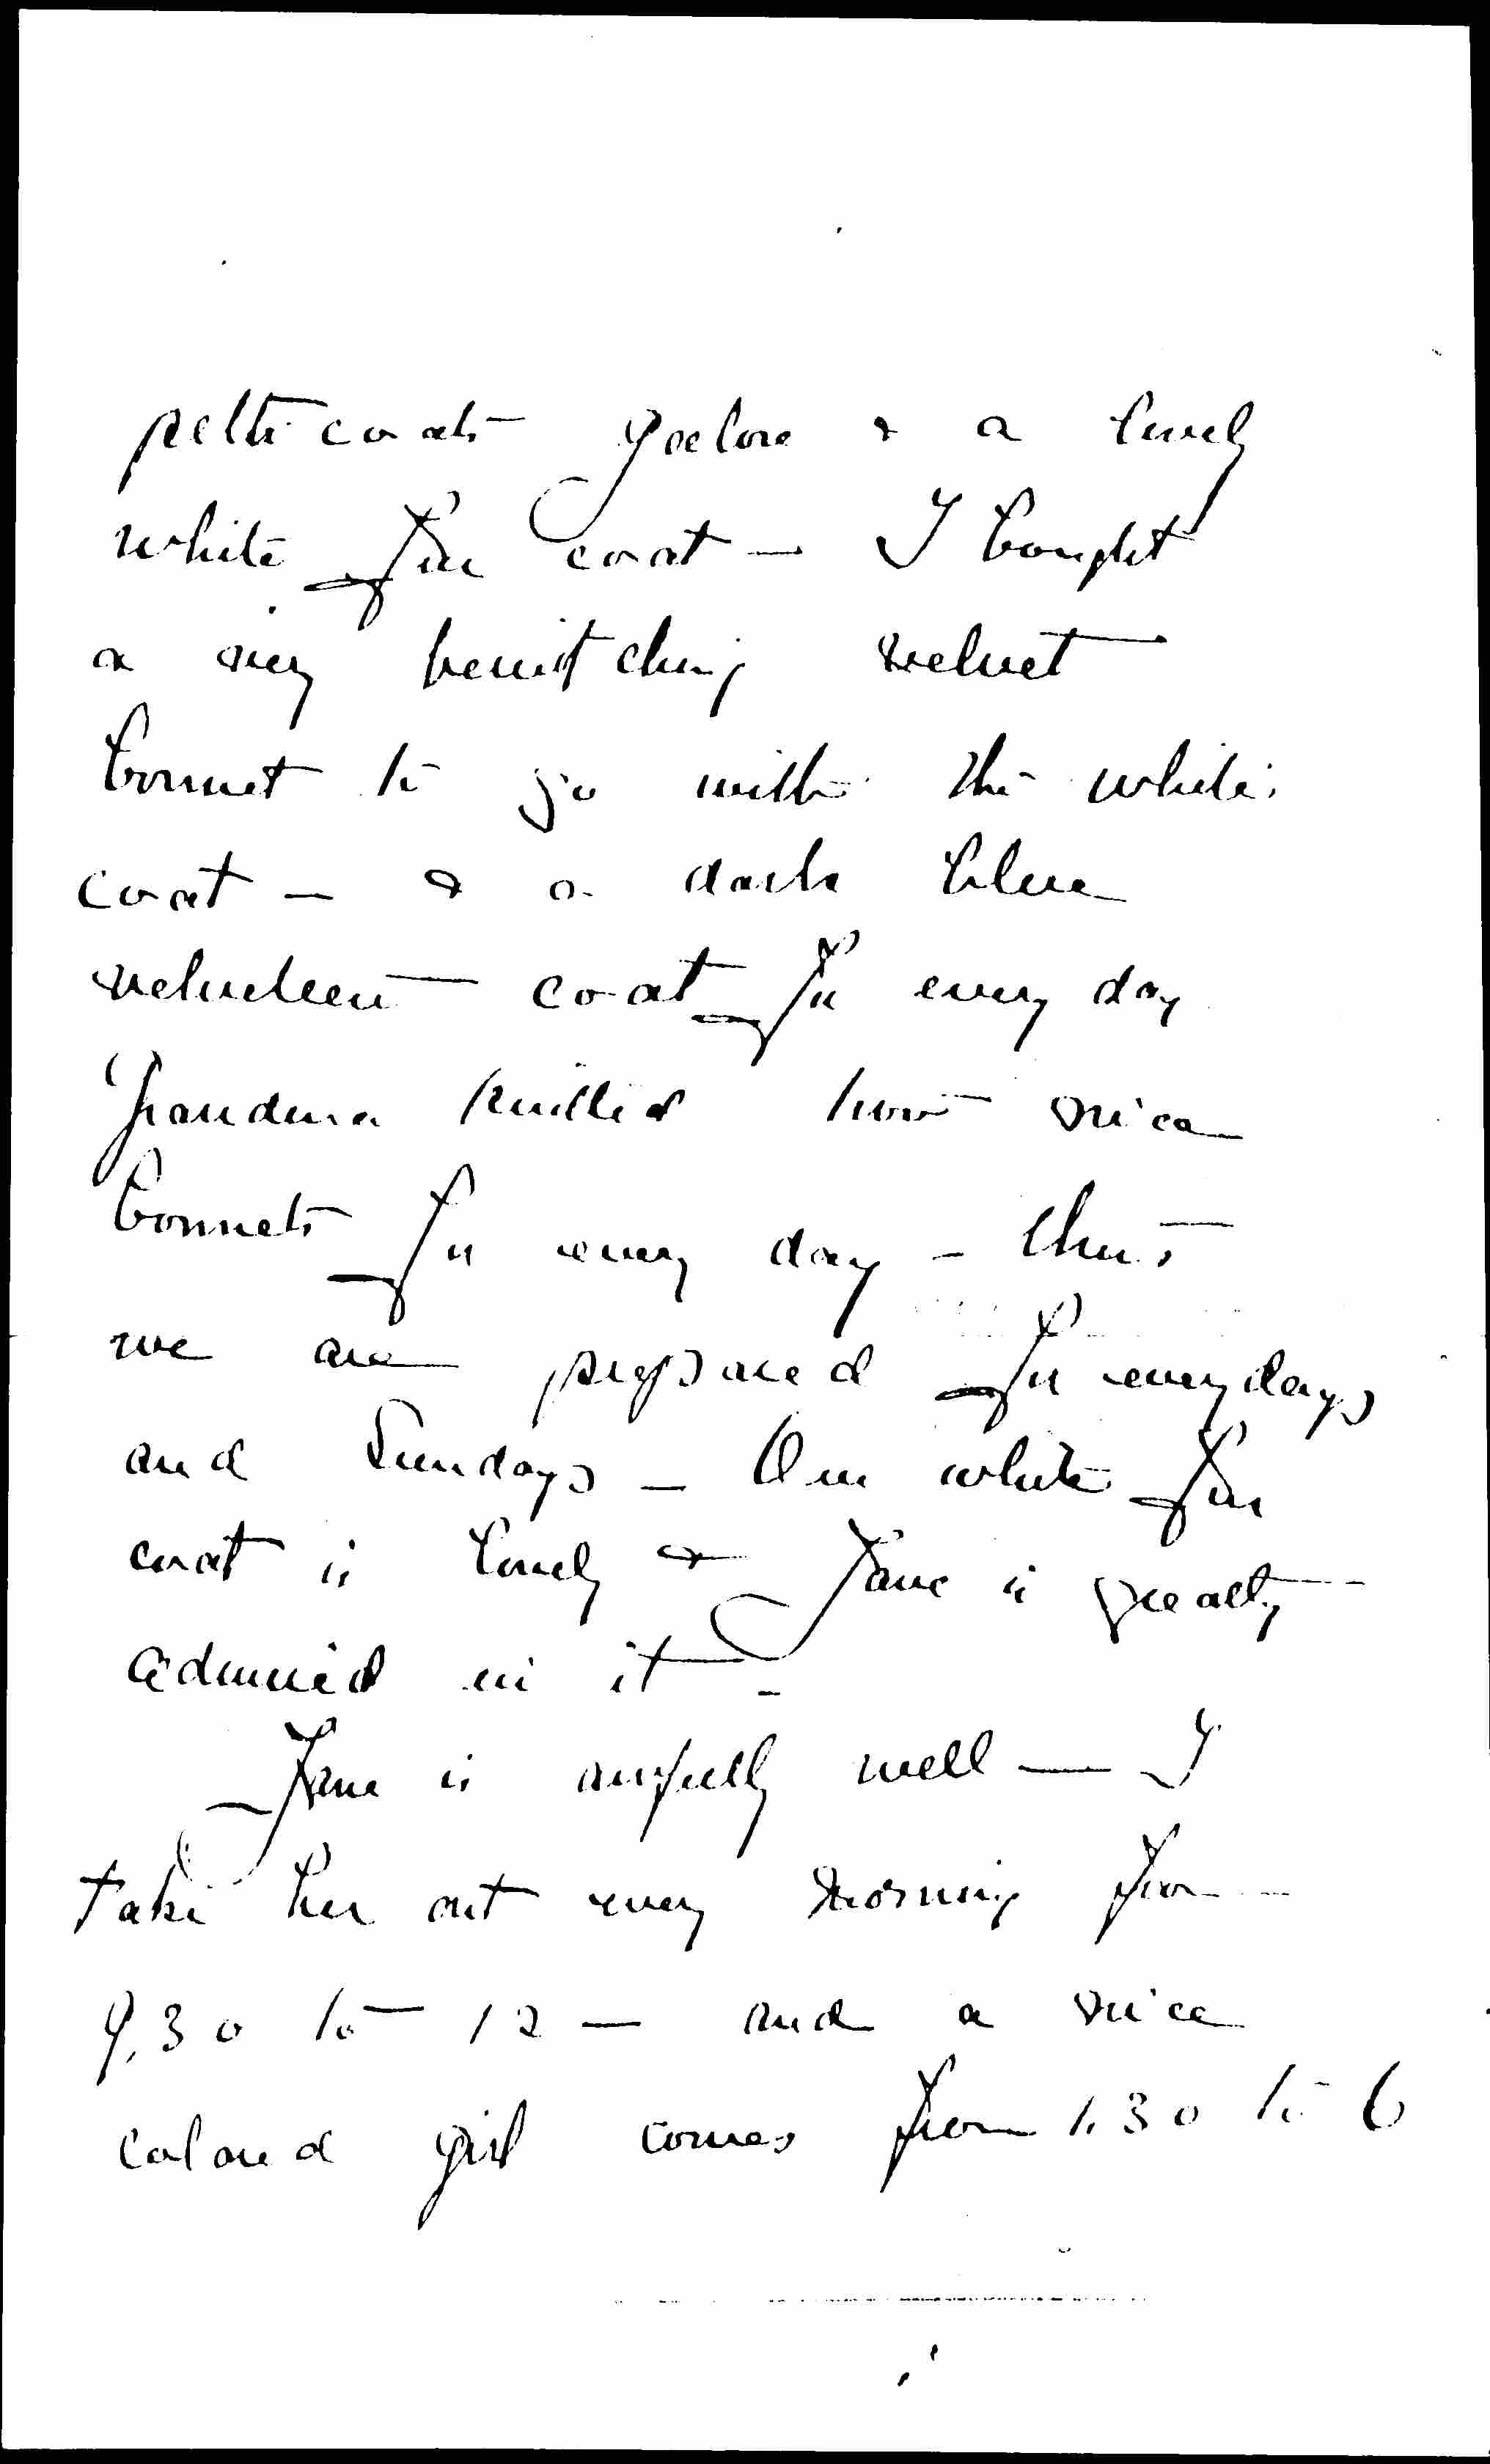 petticoats galore & a lovely
white fur coat — I bought
a very bewitching velvet
bonnet to go with the white
coat — & a dark blue
velveteen coat for every day
Grandma knitted two nice
bonnets for every day — thus
we are prepared for everydays
and Sundays — Our white fur
coat is lovely & Jane is greatly
admired in it —
Jane is awfully well — I
take her out every morning from
9.30 to 12 — and a nice
colored girl comes from 1.30 to 6